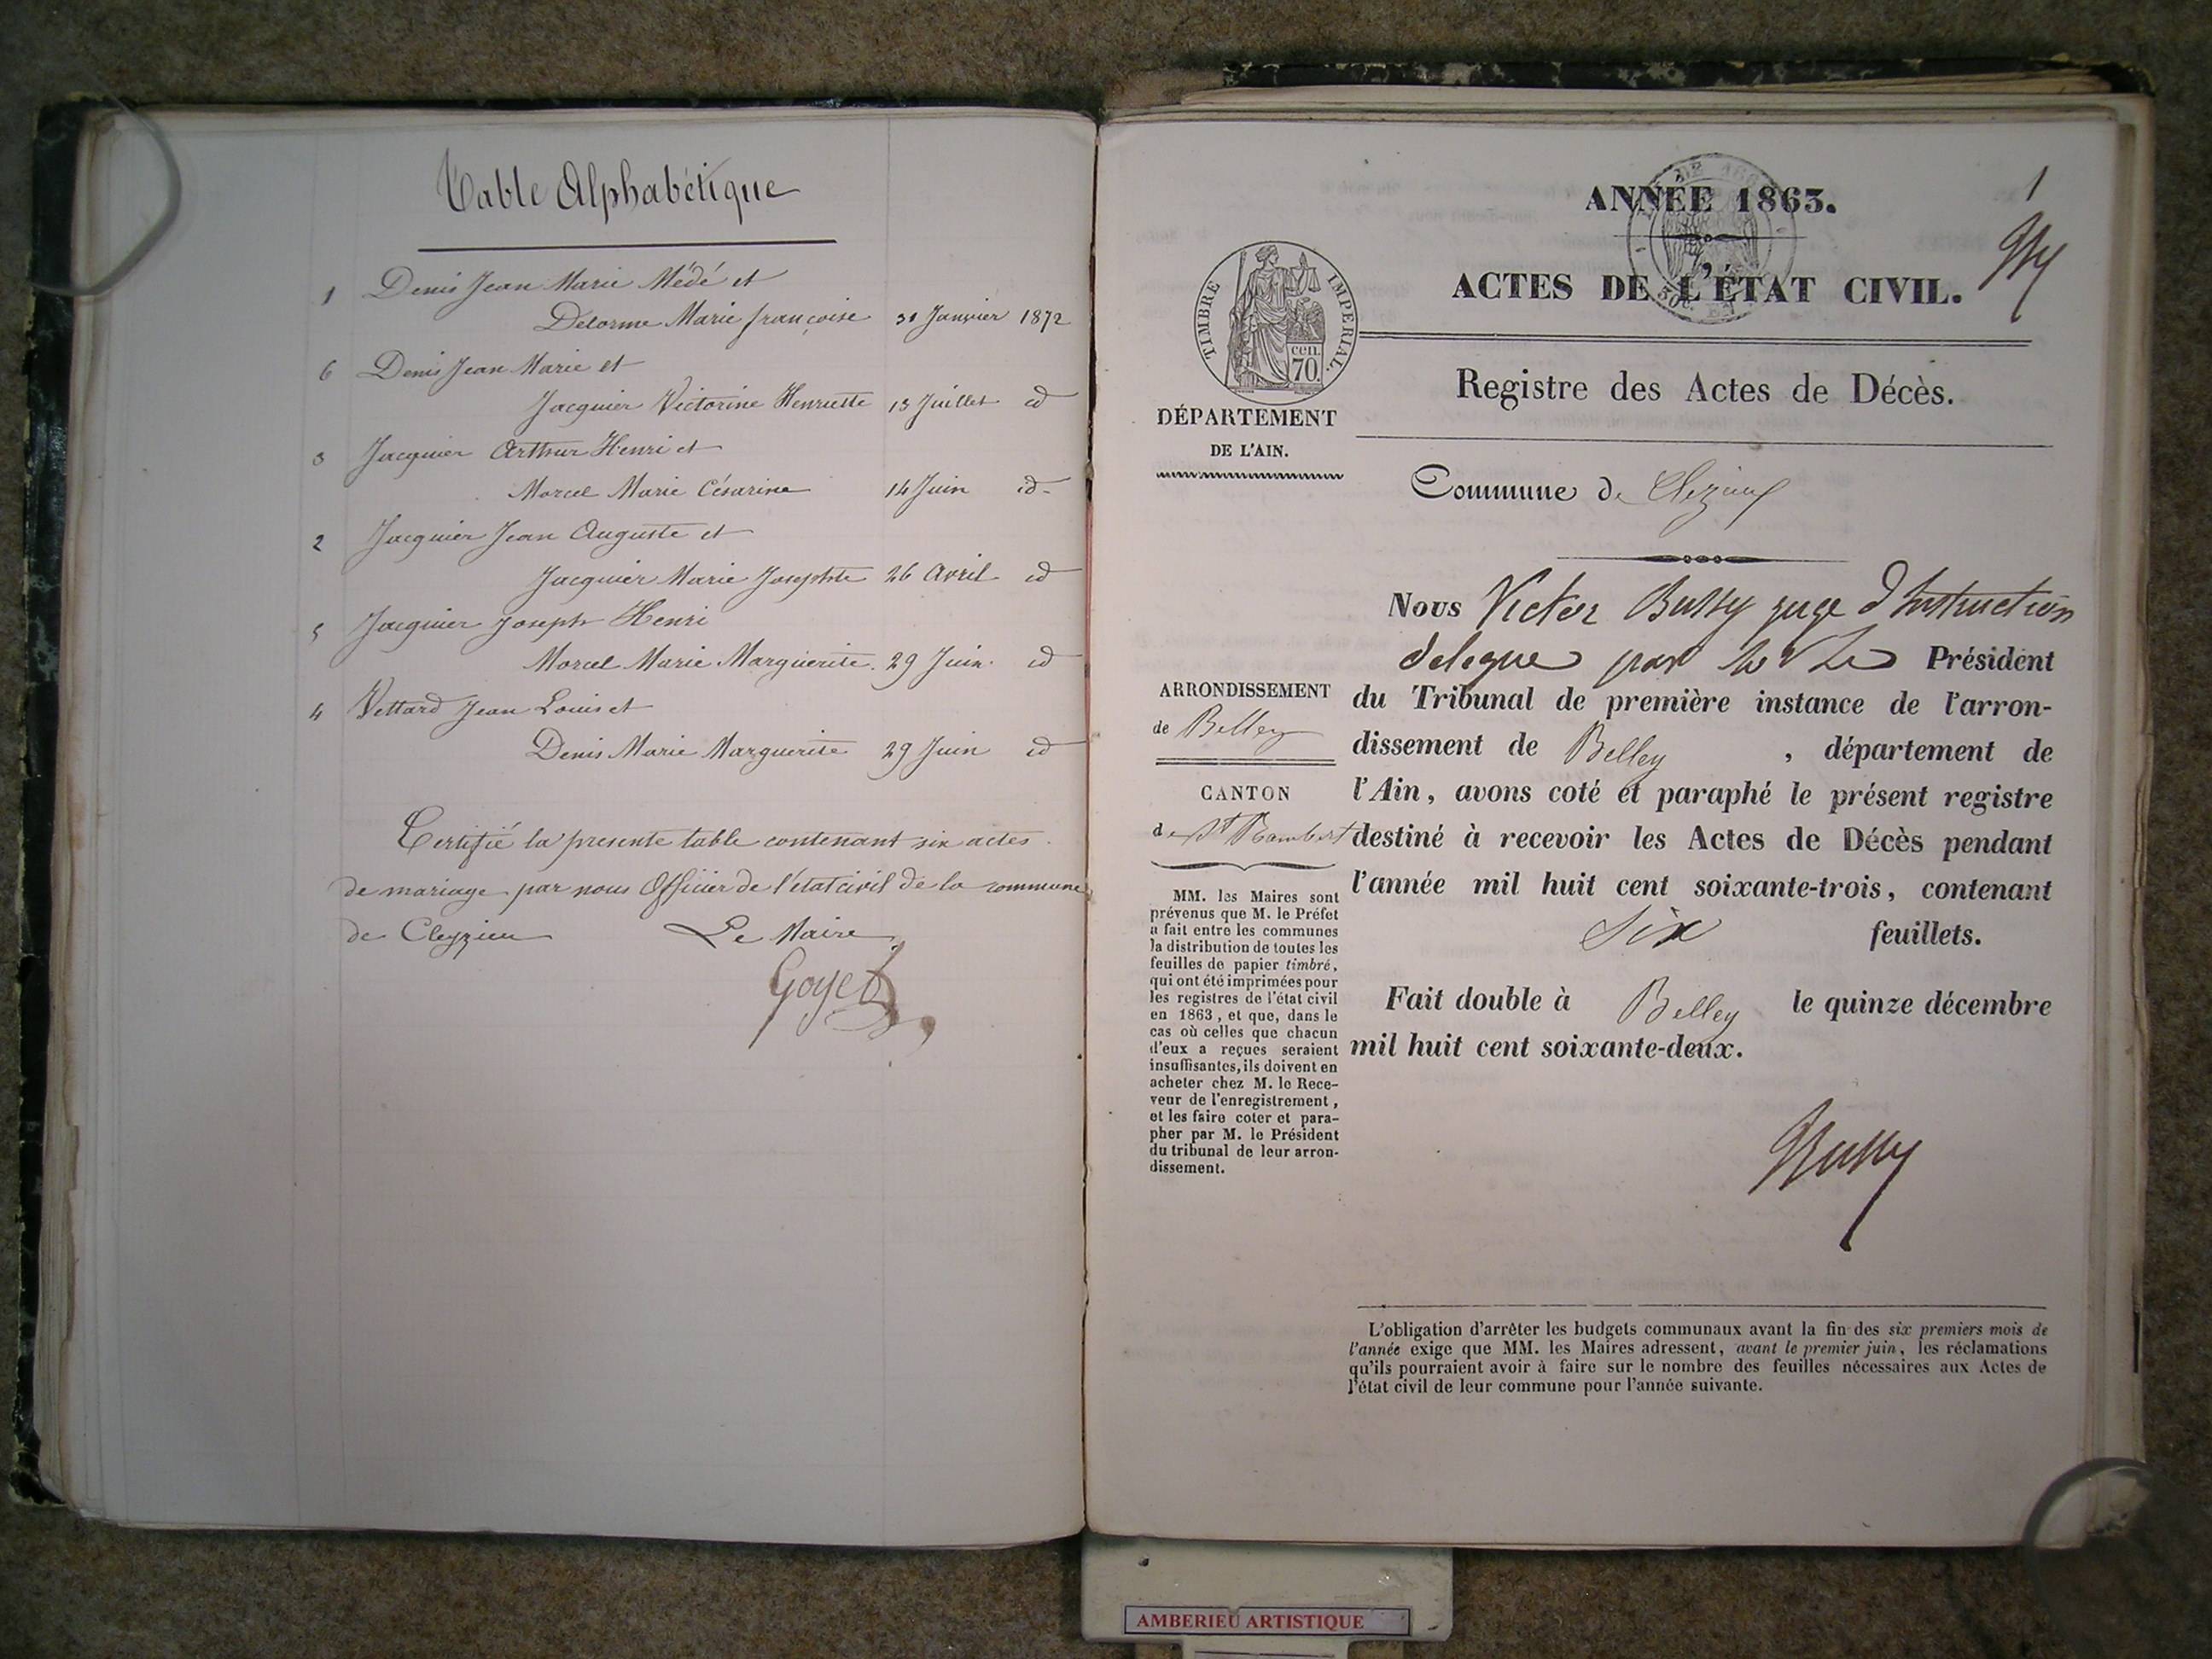 Table Alphabétique
1 Denis Jean Marie Médé et
Delorme Marie françoise 31 Janvier 1872
6 Denis Jean Marie et
Jacquier Victorine Henriette 13 Juillet id
3 Jacquier Arthur Henri et
Morcel Marie Césarine 14 Juin id-
2 Jacquier Jean Auguste et
Jacquier Marie Josephte 26 Avril id
5 Jacquier Joseph Henri
Morcel Marie Marguerite. 29 Juin. id
4 Vettard Jean Louis et
Denis Marie Marguerite 29 Juin id
Certifié la presente table contenant six actes
de mariage par nous Officier de l'état civil de la commune
de Cleyzieu Le Maire
Goyet
1
ANNÉE 1863.
ACTES DE L'ÉTAT CIVIL.
TIMBRE IMPERIAL.
cen.
70.
Registre des Actes de Décès.
DÉPARTEMENT
DE L'AIN.
Commune de Clezieux
Nous Victor Bussy juge d'Instruction
delegue par Mr Le Président
du Tribunal de première instance de l'arron-
dissement de Belley, département de
l'Ain, avons coté et paraphé le présent registre
destiné à recevoir les Actes de Décès pendant
l'année mil huit cent soixante-trois, contenant
Six feuillets.
Fait double à Belley le quinze décembre
mil huit cent soixante-deux.
Bussy
ARRONDISSEMENT
de Belley
CANTON
de St Rambert
MM. les Maires sont
prévenus que M. le Préfet
a fait entre les communes
la distribution de toutes les
feuilles de papier timbré,
qui ont été imprimées pour
les registres de l'état civil
en 1863, et que, dans le
cas où celles que chacun
d'eux a reçues seraient
insuffisantes, ils doivent en
acheter chez M. le Rece-
veur de l'enregistrement,
et les faire coter et para-
pher par M. le Président
du tribunal de leur arron-
dissement.
L'obligation d'arrêter les budgets communaux avant la fin des six premiers mois de
l'année exige que MM. les Maires adressent, avant le premier juin, les réclamations
qu'ils pourraient avoir à faire sur le nombre des feuilles nécessaires aux Actes de
l'état civil de leur commune pour l'année suivante.
AMBERIEU ARTISTIQUE